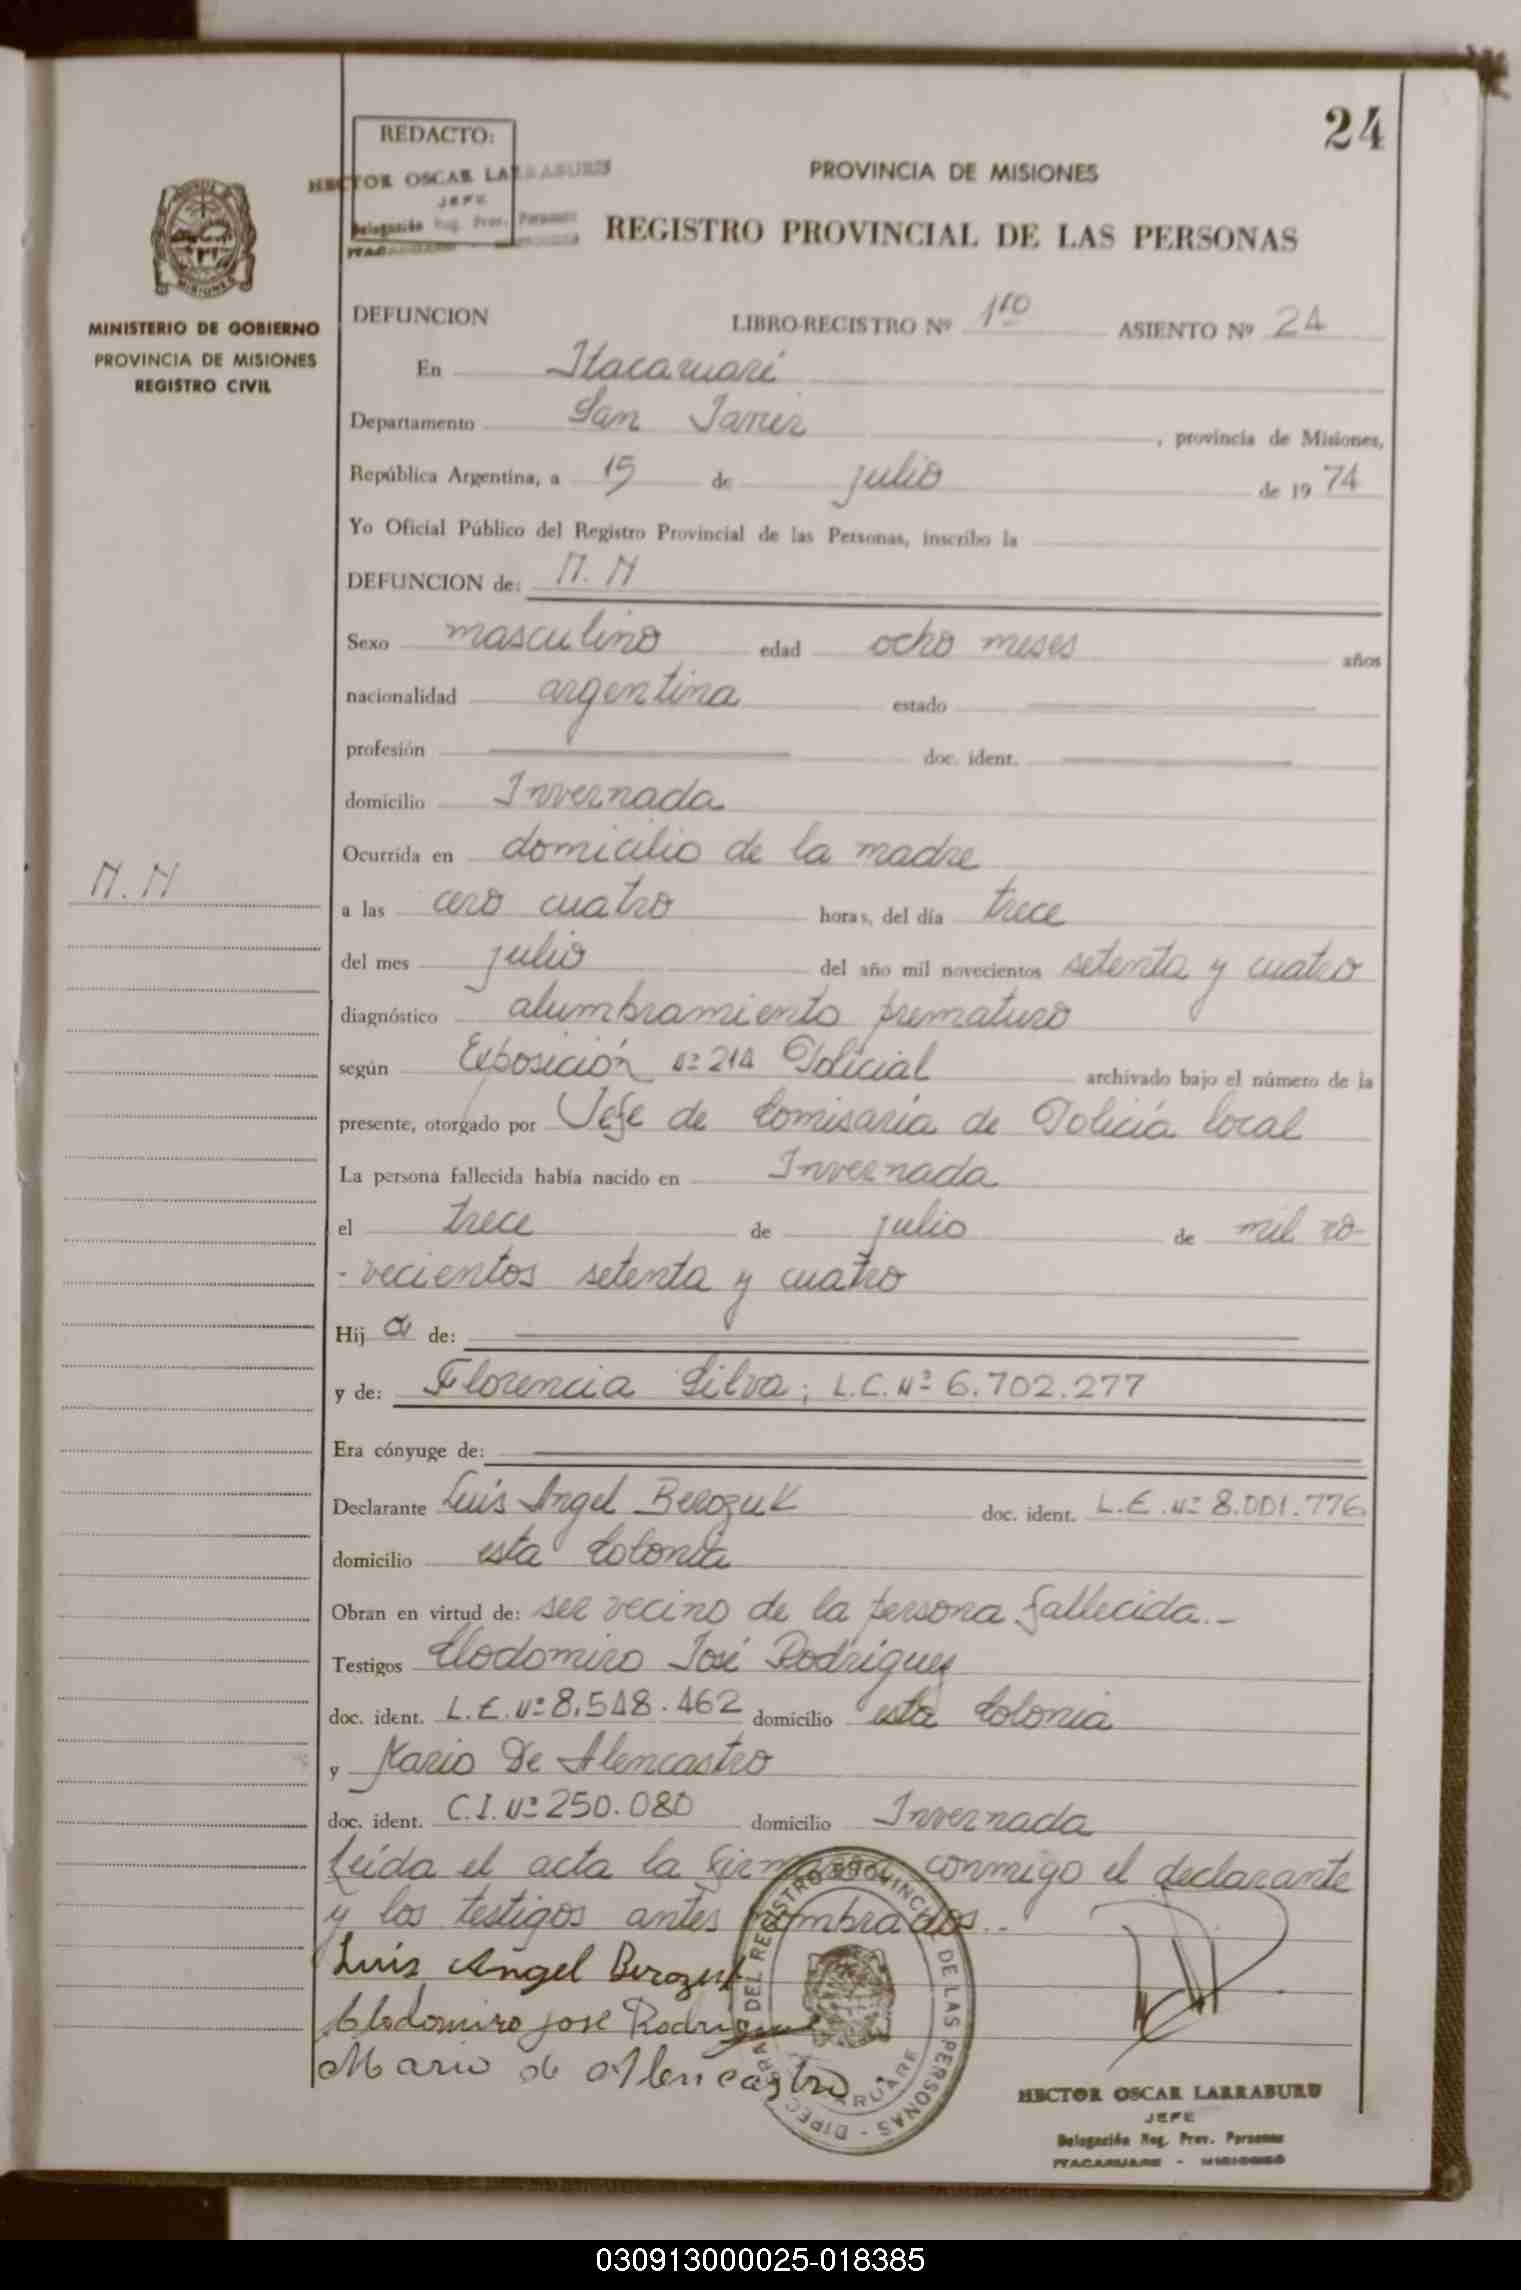 24
REDACTO:
HECTOR OSCAR LARRABURU
JEFE
Delegación Reg. Prov. Personas
PROVINCIA DE MISIONES
REGISTRO PROVINCIAL DE LAS PERSONAS
MISIONES
MINISTERIO DE GOBIERNO
PROVINCIA DE MISIONES
REGISTRO CIVIL
DEFUNCION LIBRO-REGISTRO Nº 1ro ASIENTO Nº 24
En Itacaruaré
Departamento San Javier, provincia de Misiones,
República Argentina, a 15 de julio de 1974
Yo Oficial Público del Registro Provincial de las Personas, inscribo la
DEFUNCION de: N. N
Sexo masculino edad ocho meses años
nacionalidad argentina estado
profesión doc. ident.
domicilio Invernada
Ocurrida en domicilio de la madre
N. N
a las cero cuatro horas, del día trece
del mes julio del año mil novecientos setenta y cuatro
diagnóstico alumbramiento prematuro
según Exposición Nº 214 Policial archivado bajo el número de la
presente, otorgado por Jefe de Comisaría de Policía local
La persona fallecida había nacido en Invernada
el trece de julio de mil no-
-vecientos setenta y cuatro
Hij o de:
y de: Florencia Silva; L.C. Nº 6.702.277
Era cónyuge de:
Declarante Luis Angel Berozuk doc. ident. L.E. Nº 8.001.776
domicilio esta Colonia
Obran en virtud de: ser vecino de la persona fallecida.-
Testigos Clodomiro José Rodriguez
doc. ident. L.E. Nº 8.548.462 domicilio esta Colonia
y Mario De Alencastro
doc. ident. C.I. Nº 250.080 domicilio Invernada
Leída el acta la firman conmigo el declarante
y los testigos antes nombrados.-
Luis Angel Berozuk
Clodomiro jose Rodriguez
Mario de Alencastro
DIREC GRAL DEL REGISTRO PROVINCIAL DE LAS PERSONAS
HECTOR OSCAR LARRABURU
JEFE
Delegación Reg. Prov. Personas
ITACARUARE - MISIONES
030913000025-018385